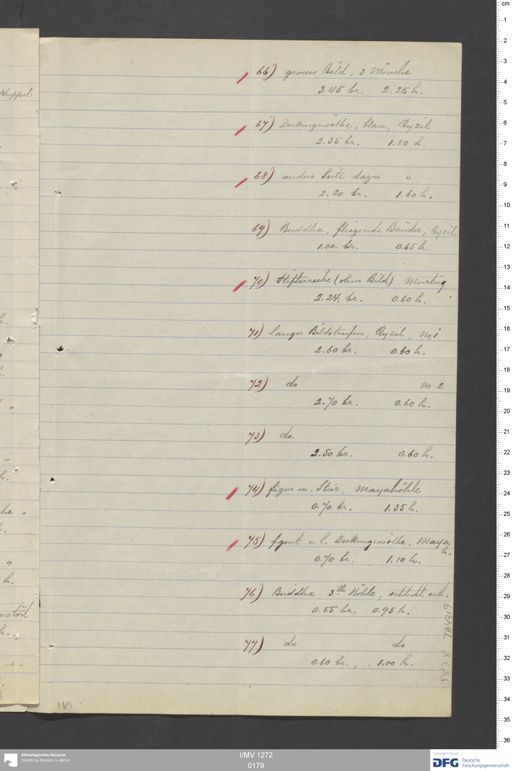 66) grosses Bild, 3 Mönche
3.45 br. 2.25 h.
67) Deckengewölbe, blau, Qyzil
2.35 br. 1.80 h.
68) andere Seite dazu "
2.20 br. 1.60 h.
69) Buddha, fliegende Bänder, Qyzil
1.00. br. 0.65 h.
70) Stifterreihe (ohne Bild) Murtuq
2.24. br. 0.60 h.
71) langer Bildstreifen, Qyzil, No 1
2.60 br. 0.60 h.
72) do No 2
2.70 br. 0.60 h.
73) do.
2.50 br. 0.60 h.
74) figur m. Stier, Mayahöhle
0.70 br. 1.35 h.
75) fgmt v. l. Deckengewölbe, Maya
h.
0.70 br. 1.10 h.
76) Buddha 3te Höhle, schlecht erh.
0.55 br. 0.95 h.
77) do do
0.60 br., 1.00 h.
I/MV 1272
0179
Ethnologisches Museum
Staatliche Museen zu Berlin
DFG Deutsche
Forschungsgemeinschaft